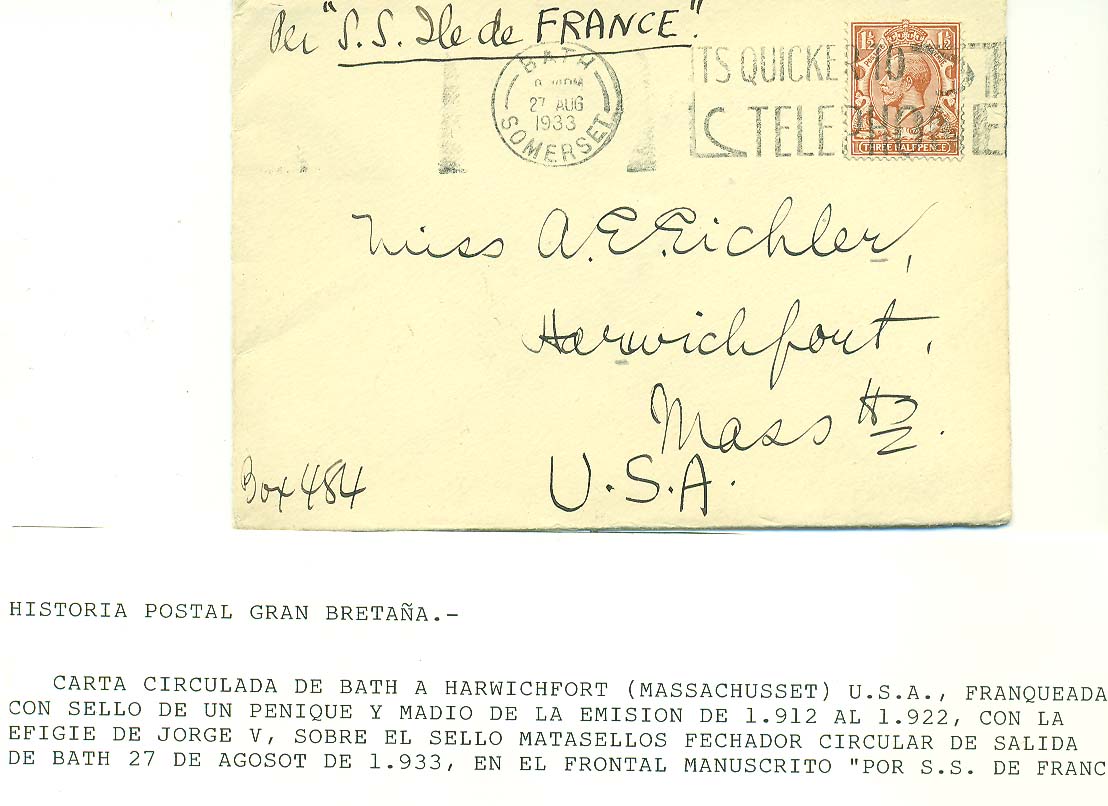 Per "S.S. Ile de FRANCE".
BATH
27 AUG
1933
SOMERSET
ITS QUICKER TO
TELEPHONE
1½ 1½
THREE HALFPENCE
Miss A.E.Eichler,
Harwichport,
Mass
U.S.A.
Box 484
HISTORIA POSTAL GRAN BRETAÑA.-
CARTA CIRCULADA DE BATH A HARWICHFORT (MASSACHUSSET) U.S.A., FRANQUEADA
CON SELLO DE UN PENIQUE Y MADIO DE LA EMISION DE 1.912 AL 1.922, CON LA
EFIGIE DE JORGE V, SOBRE EL SELLO MATASELLOS FECHADOR CIRCULAR DE SALIDA
DE BATH 27 DE AGOSOT DE 1.933, EN EL FRONTAL MANUSCRITO "POR S.S. DE FRANC